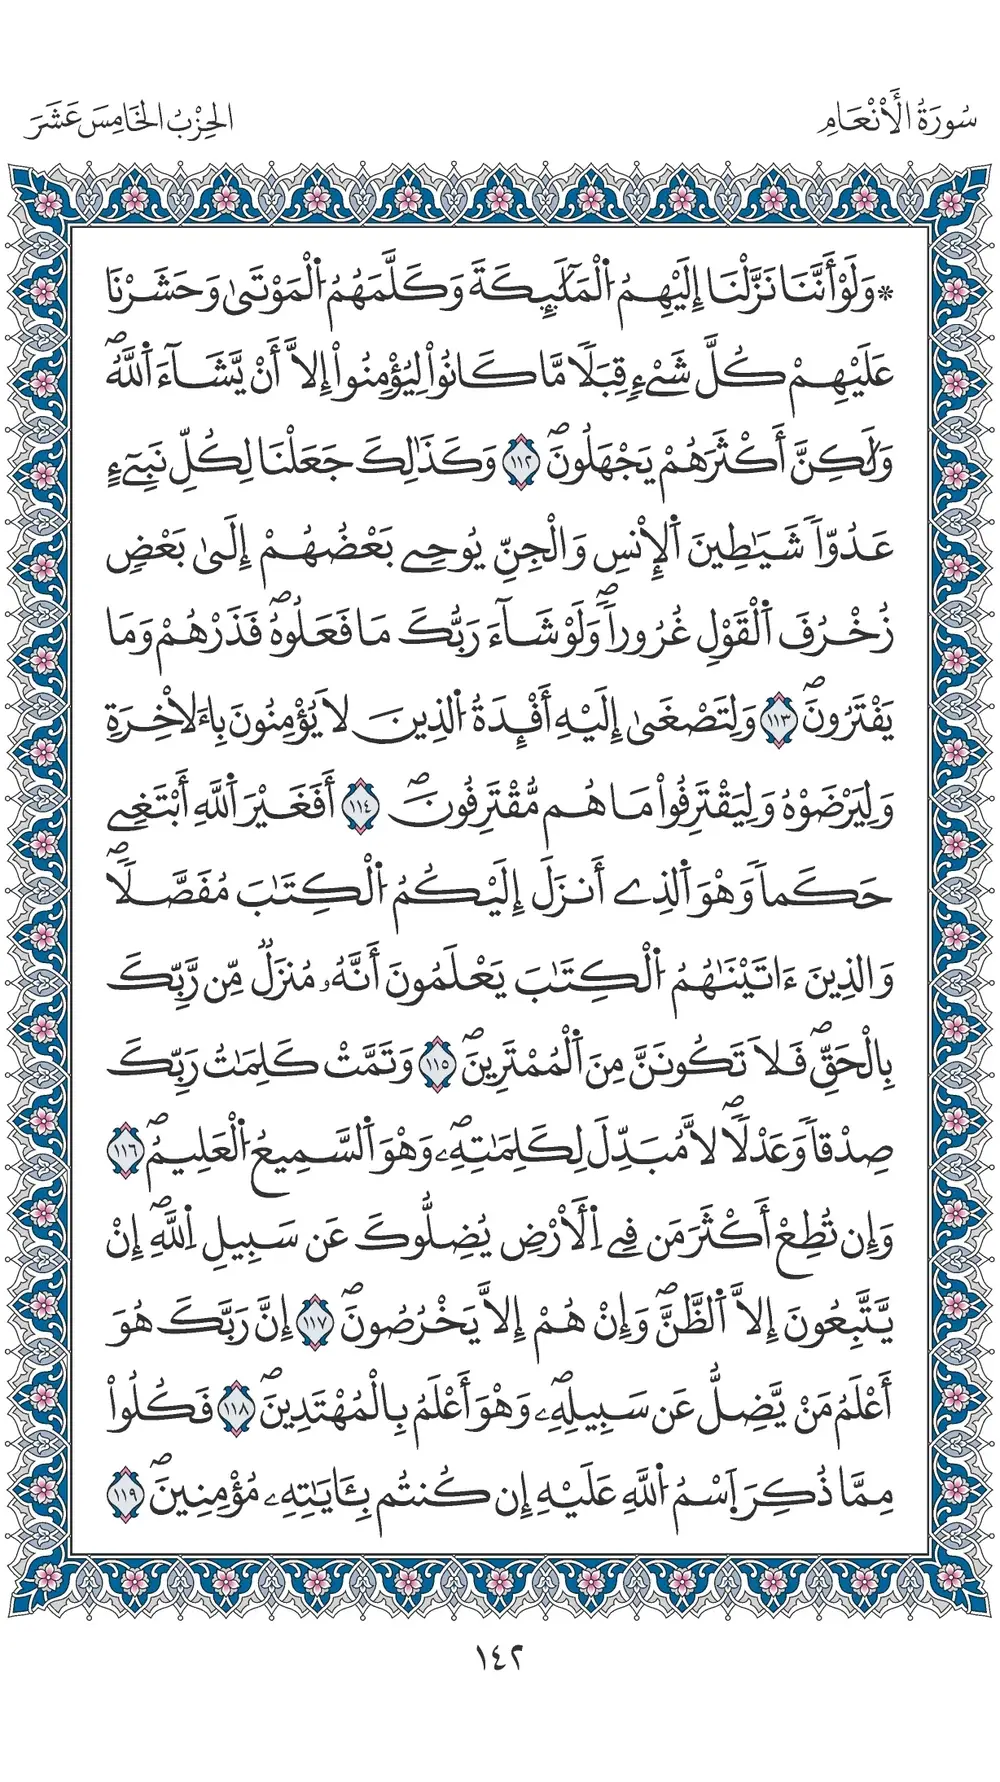 سُورَةُ الْأَنْعَامِ
الحِزْبُ الخَامِسَ عَشَرَ
* وَلَوْ أَنَّنَا نَزَّلْنَا إِلَيْهِمُ اُ۬لْمَلَٰٓئِكَةَ وَكَلَّمَهُمُ اُ۬لْمَوْتَىٰ وَحَشَرْنَا
عَلَيْهِمْ كُلَّ شَےْءٖ قِبَلاٗ مَّا كَانُواْ لِيُؤْمِنُواْ إِلَّا أَنْ يَّشَآءَ اَ۬للَّهُۖ
وَلَٰكِنَّ أَكْثَرَهُمْ يَجْهَلُونَۖ ١١٢ وَكَذَٰلِكَ جَعَلْنَا لِكُلِّ نَبِےٓءٍ
عَدُوّاٗ شَيَٰطِينَ اَ۬لْإِنْسِ وَالْجِنِّ يُوحِے بَعْضُهُمْ إِلَىٰ بَعْضٖ
زُخْرُفَ اَ۬لْقَوْلِ غُرُوراٗۖ وَلَوْ شَآءَ رَبُّكَ مَا فَعَلُوهُۖ فَذَرْهُمْ وَمَا
يَفْتَرُونَۖ ١١٣ وَلِتَصْغَىٰ إِلَيْهِ أَفْـِٕدَةُ اُ۬لذِينَ لَا يُؤْمِنُونَ بِاءَلَاخِرَةِ
وَلِيَرْضَوْهُ وَلِيَقْتَرِفُواْ مَا هُم مُّقْتَرِفُونَۖ ١١٤ أَفَغَيْرَ اَ۬للَّهِ أَبْتَغِے
حَكَماٗ وَهْوَ اَ۬لذِے أَنزَلَ إِلَيْكُمُ اُ۬لْكِتَٰبَ مُفَصَّلاٗۖ
وَالذِينَ ءَاتَيْنَٰهُمُ اُ۬لْكِتَٰبَ يَعْلَمُونَ أَنَّهُۥ مُنزَلٞ مِّن رَّبِّكَ
بِالْحَقِّۖ فَلَا تَكُونَنَّ مِنَ اَ۬لْمُمْتَرِينَۖ ١١٥ وَتَمَّتْ كَلِمَٰتُ رَبِّكَ
صِدْقاٗ وَعَدْلاٗۖ لَّا مُبَدِّلَ لِكَلِمَٰتِهِۦۖ وَهْوَ اَ۬لسَّمِيعُ اُ۬لْعَلِيمُۖ ١١٦
وَإِن تُطِعْ أَكْثَرَ مَن فِے اِ۬لْأَرْضِ يُضِلُّوكَ عَن سَبِيلِ اِ۬للَّهِۖ إِنْ
يَّتَّبِعُونَ إِلَّا اَ۬لظَّنَّۖ وَإِنْ هُمْ إِلَّا يَخْرُصُونَۖ ١١٧ إِنَّ رَبَّكَ هُوَ
أَعْلَمُ مَنْ يَّضِلُّ عَن سَبِيلِهِۦۖ وَهْوَ أَعْلَمُ بِالْمُهْتَدِينَۖ ١١٨ فَكُلُواْ
مِمَّا ذُكِرَ اَ۪سْمُ اُ۬للَّهِ عَلَيْهِ إِن كُنتُم بِـَٔايَٰتِهِۦ مُؤْمِنِينَۖ ١١٩
١٤٢